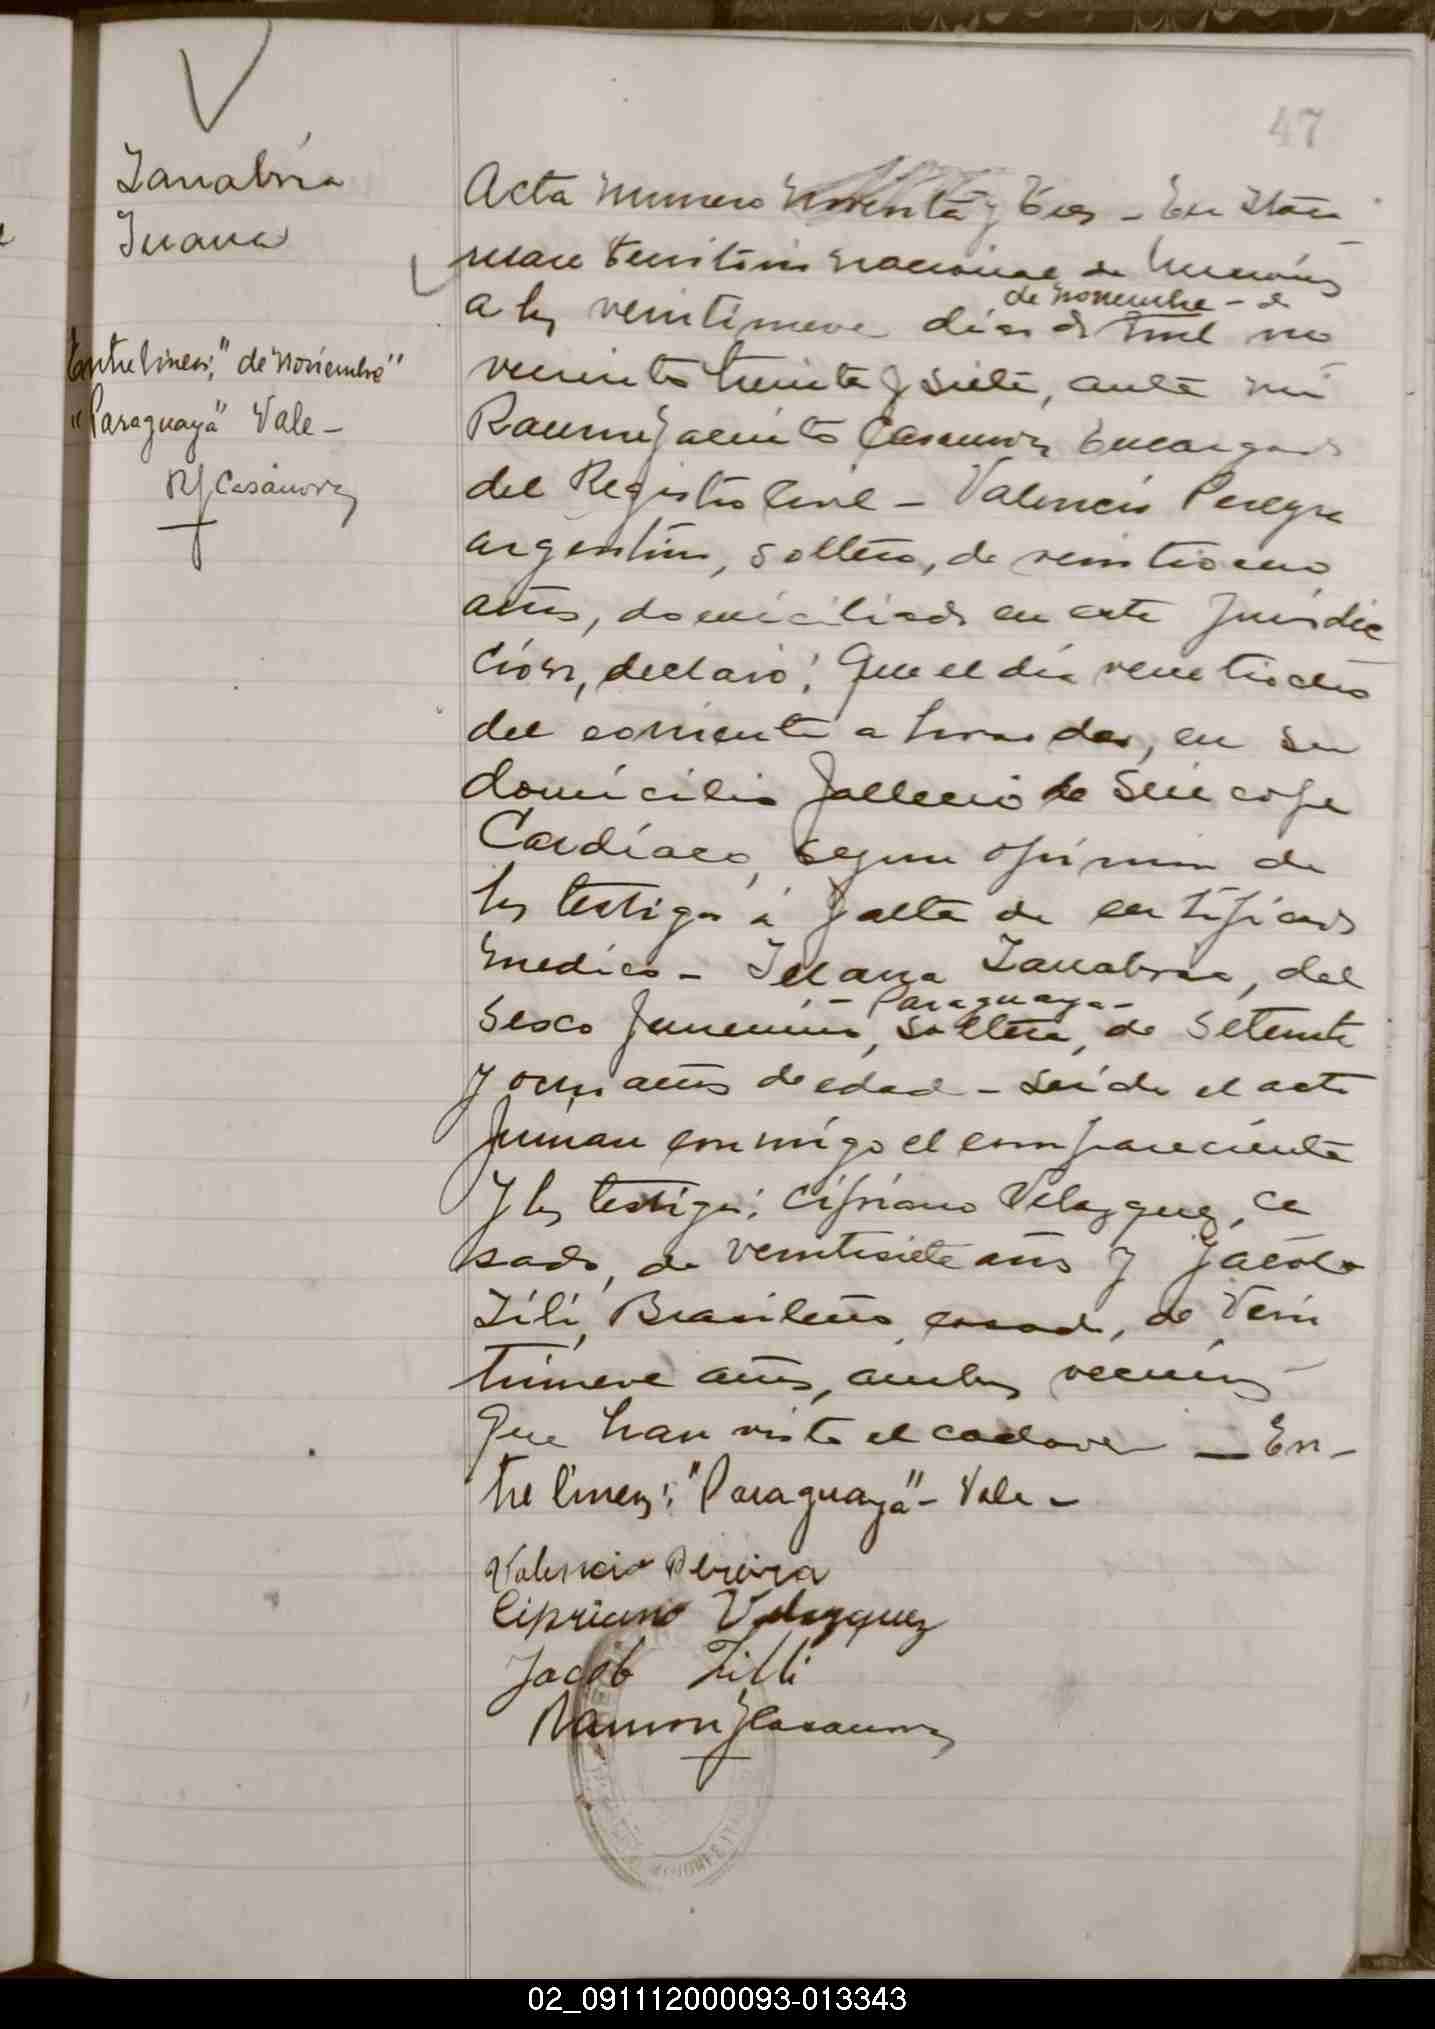 47
Zanabria
Juana
Entrelineas; "de noviembre"
"Paraguaya" Vale -
RJCasanova
Acta numero noventa y tres - En Itacu
ruare territorio nacional de Misiones
de noviembre - de
a los veintinueve dias de mil no
vecientos treinta y siete, ante mi
Ramon Jacinto Casanova Encargado
del Registro Civil - Valencio Pereyra
argentino, soltero, de veintiocuo
años, domiciliado en esta Jurisdic
ción, declaró: Que el día veintiocho
del corriente a horas dos, en su
domicilio falleció de Sincope
Cardíaco, segun opinion de
los testigos á falta de certificado
medico - Juana Zanabria, del
- Paraguaya -
sexo femenino, soltera, de setenta
y ocho años de edad - Leída el acta
firman conmigo el compareciente
y los testigos: Cipriano Velazquez, ca
sado, de veintisiete años y Jacobo
Zili, Brasileño, casado, de Vein
tinueve años, ambos vecinos
Que han visto el cadaver - En-
tre lineas: "Paraguaya" - Vale -
Valencio Pereira
Cipriano Velazquez
Jacob Zilli
Ramon JCasanova
02_091112000093-013343